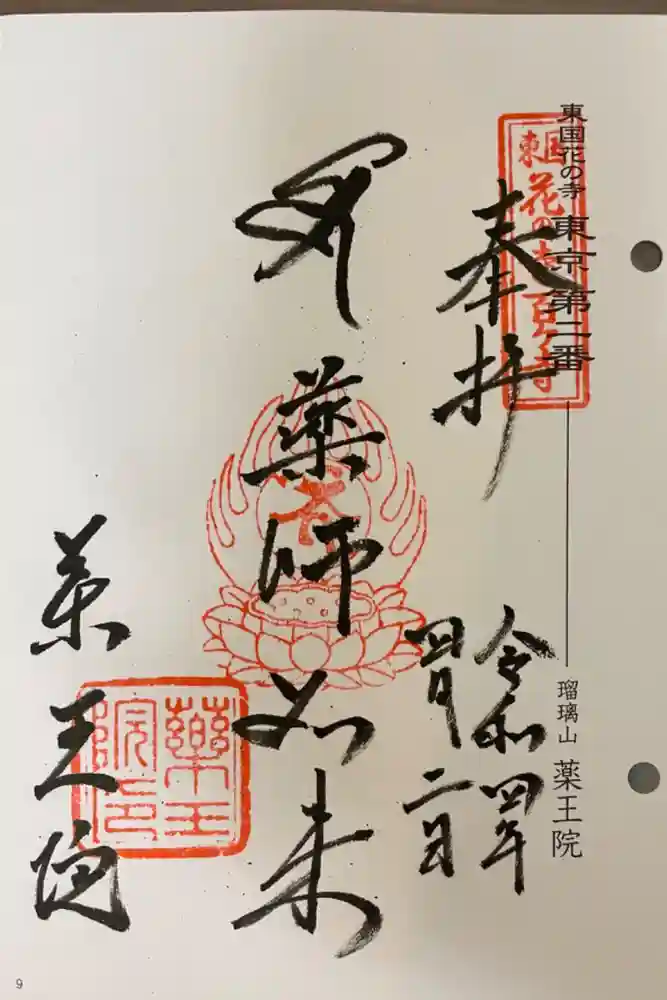 東国花の寺 東京 第二番
東国
花の寺百ヶ寺
奉拝
瑠璃山 薬王院
令和四年
四月二日
薬師如来
薬王院
薬王
院印
9